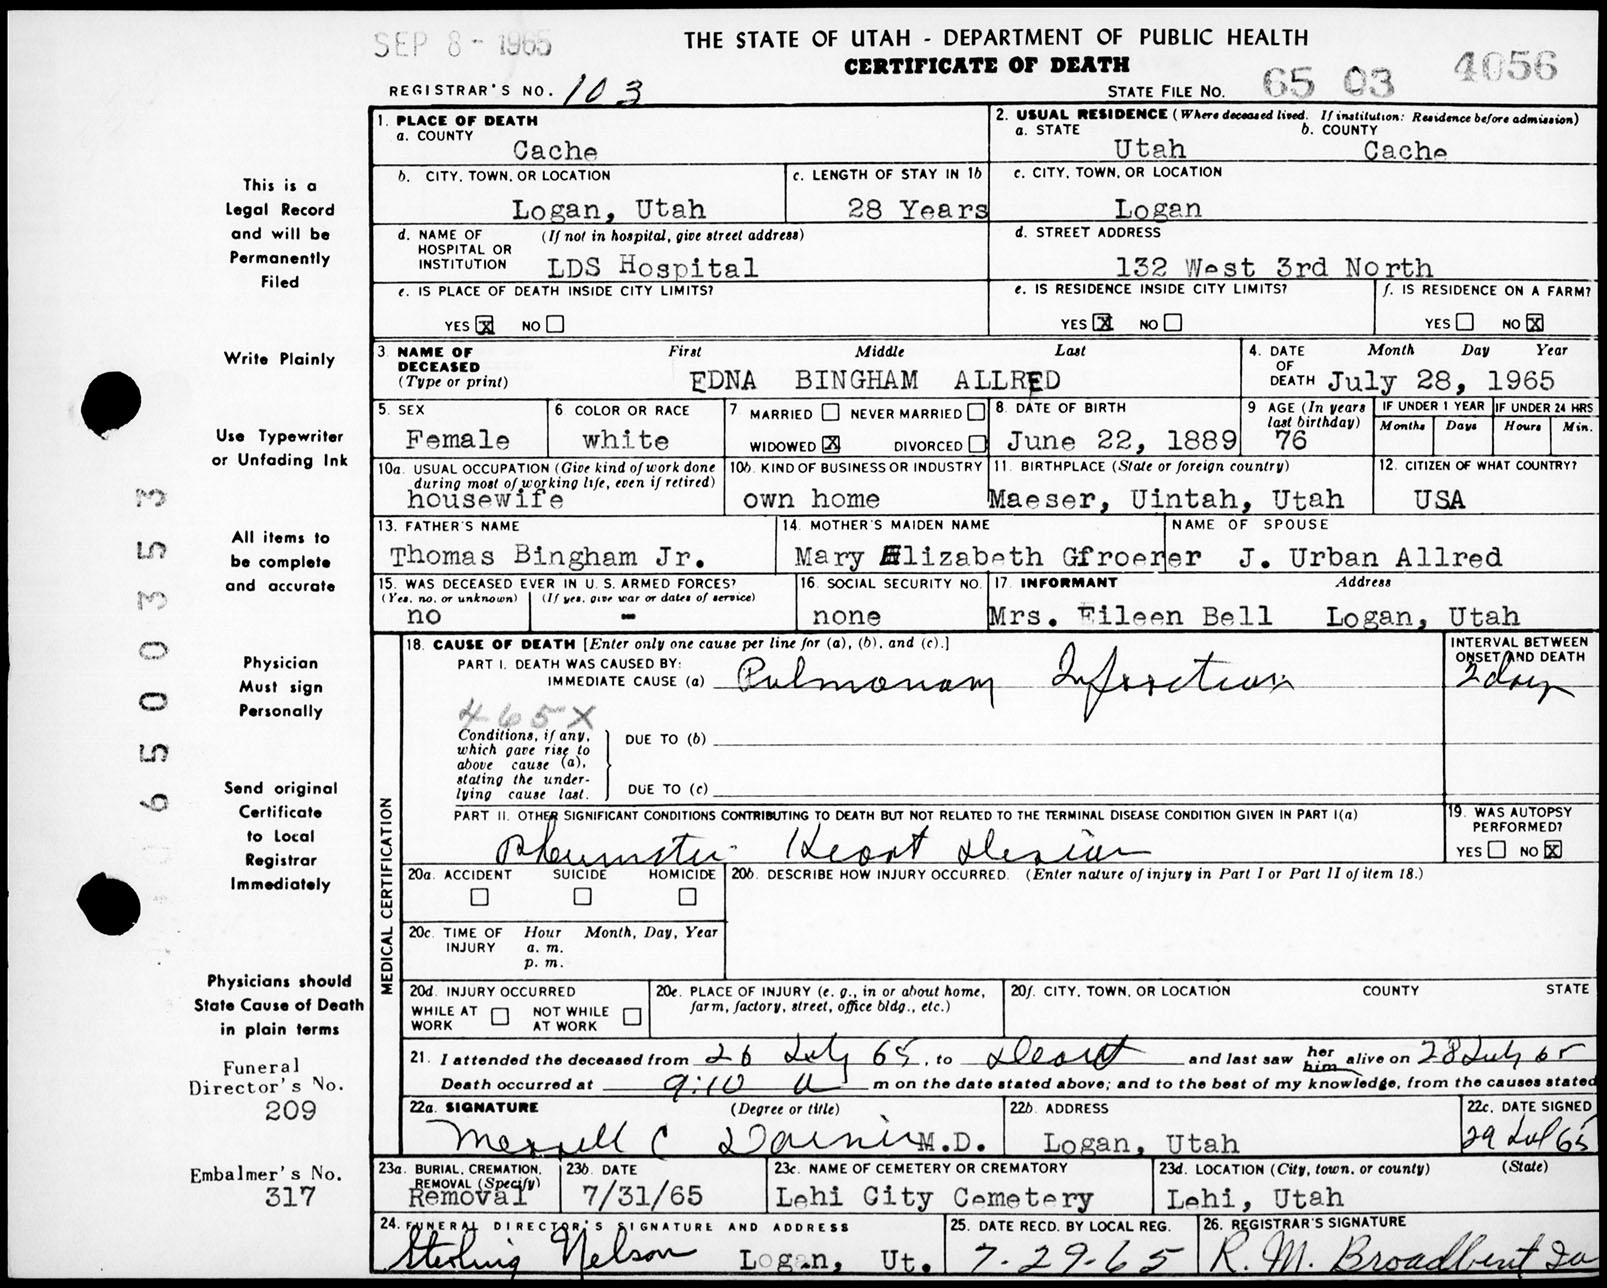 SEP 8 - 1965
THE STATE OF UTAH - DEPARTMENT OF PUBLIC HEALTH
CERTIFICATE OF DEATH
REGISTRAR'S NO. 103
STATE FILE NO. 65 03 4056
1. PLACE OF DEATH
a. COUNTY
Cache
2. USUAL RESIDENCE (Where deceased lived. If institution: Residence before admission)
a. STATE b. COUNTY
Utah Cache
b. CITY, TOWN, OR LOCATION
Logan, Utah
c. LENGTH OF STAY IN 1b
28 Years
c. CITY, TOWN, OR LOCATION
Logan
d. NAME OF HOSPITAL OR INSTITUTION (If not in hospital, give street address)
LDS Hospital
d. STREET ADDRESS
132 West 3rd North
e. IS PLACE OF DEATH INSIDE CITY LIMITS?
YES X NO
e. IS RESIDENCE INSIDE CITY LIMITS?
YES X NO
f. IS RESIDENCE ON A FARM?
YES NO X
3. NAME OF DECEASED (Type or print)
First Middle Last
EDNA BINGHAM ALLRED
4. DATE OF DEATH
Month Day Year
July 28, 1965
5. SEX
Female
6 COLOR OR RACE
white
7 MARRIED NEVER MARRIED
WIDOWED X DIVORCED
8. DATE OF BIRTH
June 22, 1889
9 AGE (In years last birthday)
76
IF UNDER 1 YEAR
Months Days
IF UNDER 24 HRS
Hours Min.
10a. USUAL OCCUPATION (Give kind of work done during most of working life, even if retired)
housewife
10b. KIND OF BUSINESS OR INDUSTRY
own home
11. BIRTHPLACE (State or foreign country)
Maeser, Uintah, Utah
12. CITIZEN OF WHAT COUNTRY?
USA
13. FATHER'S NAME
Thomas Bingham Jr.
14. MOTHER'S MAIDEN NAME
Mary Elizabeth Gfroerer
NAME OF SPOUSE
J. Urban Allred
15. WAS DECEASED EVER IN U. S. ARMED FORCES?
(Yes, no, or unknown) (If yes, give war or dates of service)
no -
16. SOCIAL SECURITY NO.
none
17. INFORMANT Address
Mrs. Eileen Bell Logan, Utah
MEDICAL CERTIFICATION
18. CAUSE OF DEATH [Enter only one cause per line for (a), (b), and (c).]
PART I. DEATH WAS CAUSED BY:
IMMEDIATE CAUSE (a) Pulmonary Infarction
INTERVAL BETWEEN ONSET AND DEATH
2 days
465X
Conditions, if any, which gave rise to above cause (a), stating the underlying cause last.
DUE TO (b)
DUE TO (c)
PART II. OTHER SIGNIFICANT CONDITIONS CONTRIBUTING TO DEATH BUT NOT RELATED TO THE TERMINAL DISEASE CONDITION GIVEN IN PART I(a)
Rheumatic Heart Disease
19. WAS AUTOPSY PERFORMED?
YES NO X
20a. ACCIDENT SUICIDE HOMICIDE
20b. DESCRIBE HOW INJURY OCCURRED. (Enter nature of injury in Part I or Part II of item 18.)
20c. TIME OF INJURY
Hour Month, Day, Year
a. m.
p. m.
20d. INJURY OCCURRED
WHILE AT WORK NOT WHILE AT WORK
20e. PLACE OF INJURY (e. g., in or about home, farm, factory, street, office bldg., etc.)
20f. CITY, TOWN, OR LOCATION COUNTY STATE
21. I attended the deceased from 26 July 65, to Death and last saw her him alive on 28 July 65
Death occurred at 9:10 a m on the date stated above; and to the best of my knowledge, from the causes stated
22a. SIGNATURE (Degree or title)
Merrell C M.D.
22b. ADDRESS
Logan, Utah
22c. DATE SIGNED
29 Jul 65
23a. BURIAL, CREMATION, REMOVAL (Specify)
Removal
23b. DATE
7/31/65
23c. NAME OF CEMETERY OR CREMATORY
Lehi City Cemetery
23d. LOCATION (City, town, or county) (State)
Lehi, Utah
24. FUNERAL DIRECTOR'S SIGNATURE AND ADDRESS
Sterling Nelson Logan, Ut.
25. DATE RECD. BY LOCAL REG.
7-29-65
26. REGISTRAR'S SIGNATURE
R. M. Broadbent
This is a
Legal Record
and will be
Permanently
Filed
Write Plainly
Use Typewriter
or Unfading Ink
All items to
be complete
and accurate
Physician
Must sign
Personally
Send original
Certificate
to Local
Registrar
Immediately
Physicians should
State Cause of Death
in plain terms
Funeral
Director's No.
209
Embalmer's No.
317
65 00353